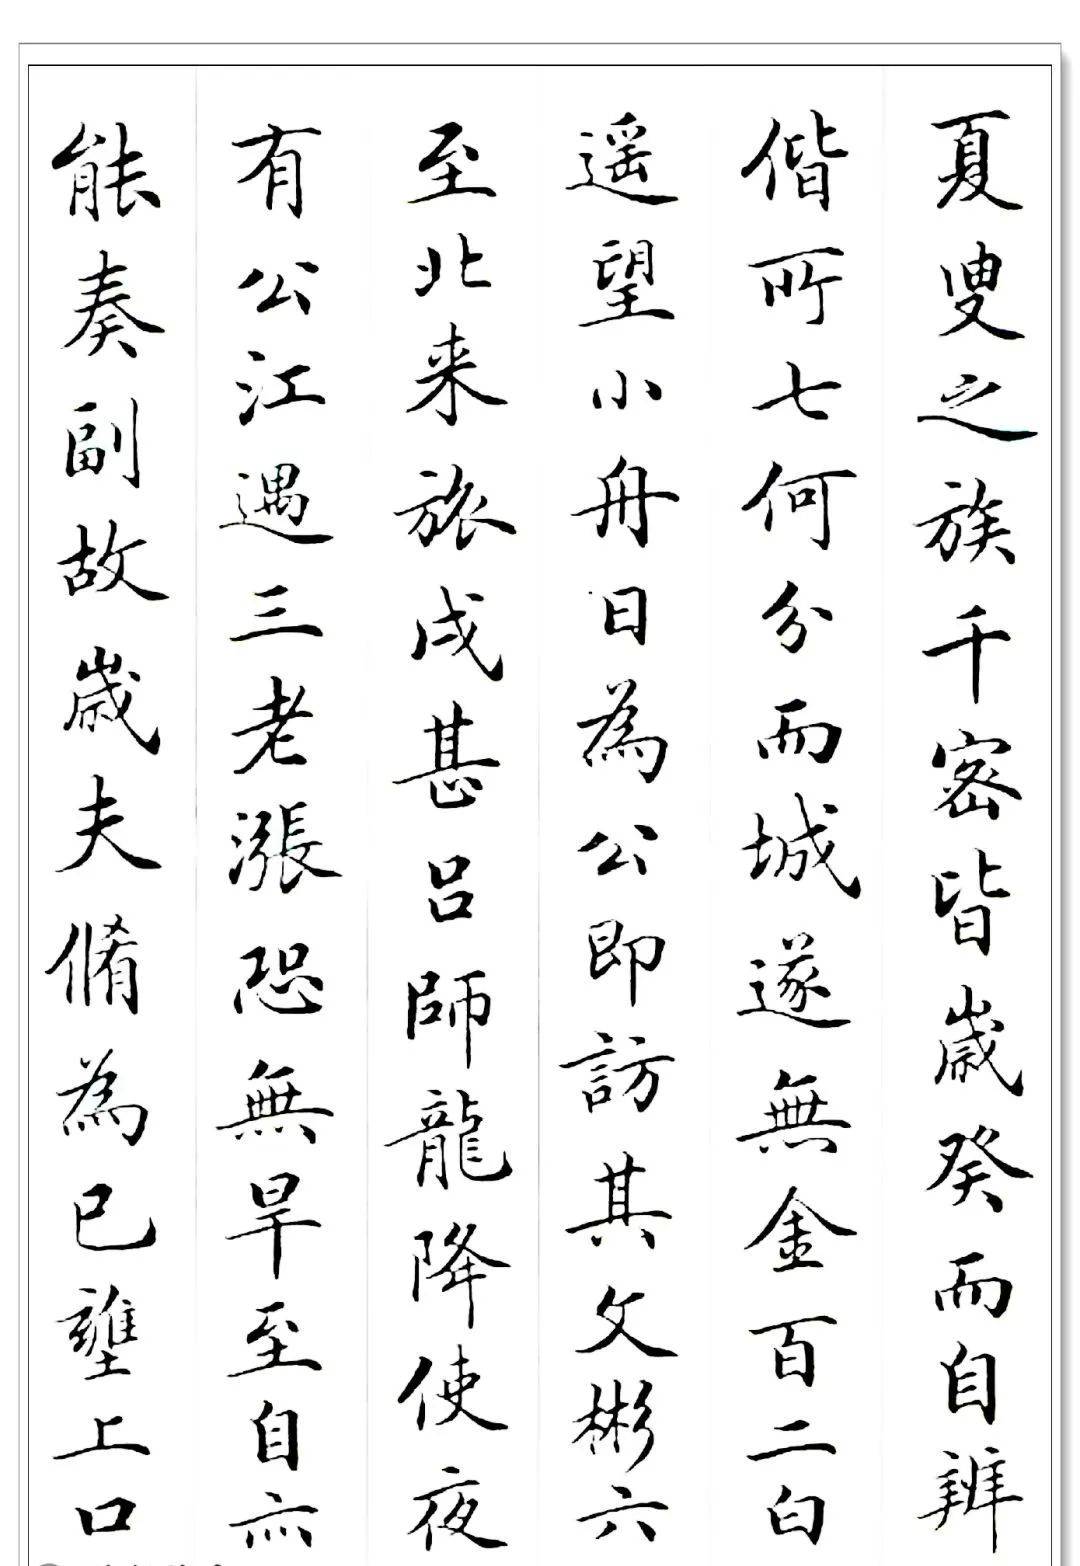 夏叟之族千密皆歲癸而自辨
偕所七何分而城遂無金百二白
遥望小舟日為公即訪其文彬六
至北来旅戌甚吕師龍降使夜
有公江遇三老漲恐無旱至自亦
能奏副故歲夫脩為已壅上口